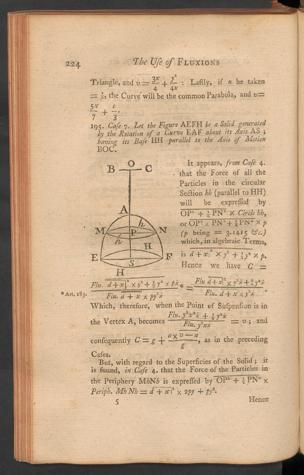 224 The Use of FLUXIONS
Triangle, and υ = 3x/4 + y²/4x : Lastly, if n be taken
= ½, the Curve will be the common Parabola, and υ =
5x/7 +
195. Case 7. Let the Figure AEFH be a Solid generated
by the Rotation of a Curve EAF about its Axis AS;
having its Base HH parallel to the Axis of Motion
BOC.
O
B C
A
M h N
P
n H
E F
S
H
It appears, from Case 4.
that the Force of all the
Particles in the circular
Section hh (parallel to HH)
will be expressed by
OP² + ¼PN² × Circle hh,
or OP² × PN² + ¼PN⁴ × p
(p being = 3.1415 &c.)
which, in algebraic Terms,
is d + x|² × y² + ¼y⁴ × p.
Hence we have G =
* Art. 183.
Which, therefore, when the Point of Suspension is in
the Vertex A, becomes = υ ; and
consequently as in the preceding
Cases.
But, with regard to the Superficies of the Solid ; it
is found, in Case 4. that the Force of the Particles in
the Periphery MhNh is expressed by OP² + ½PN² ×
Periph. Mh Nh = d + x|² × 2py + py³.
5 Hence